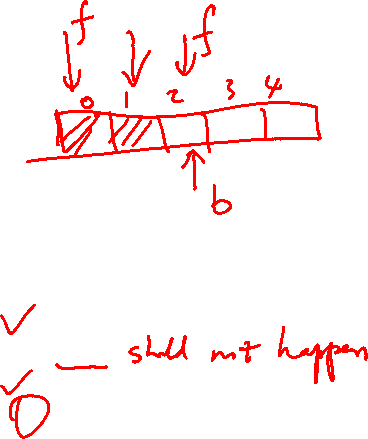 f f
0 1 2 3 4
b
✓
✓ — should not happen